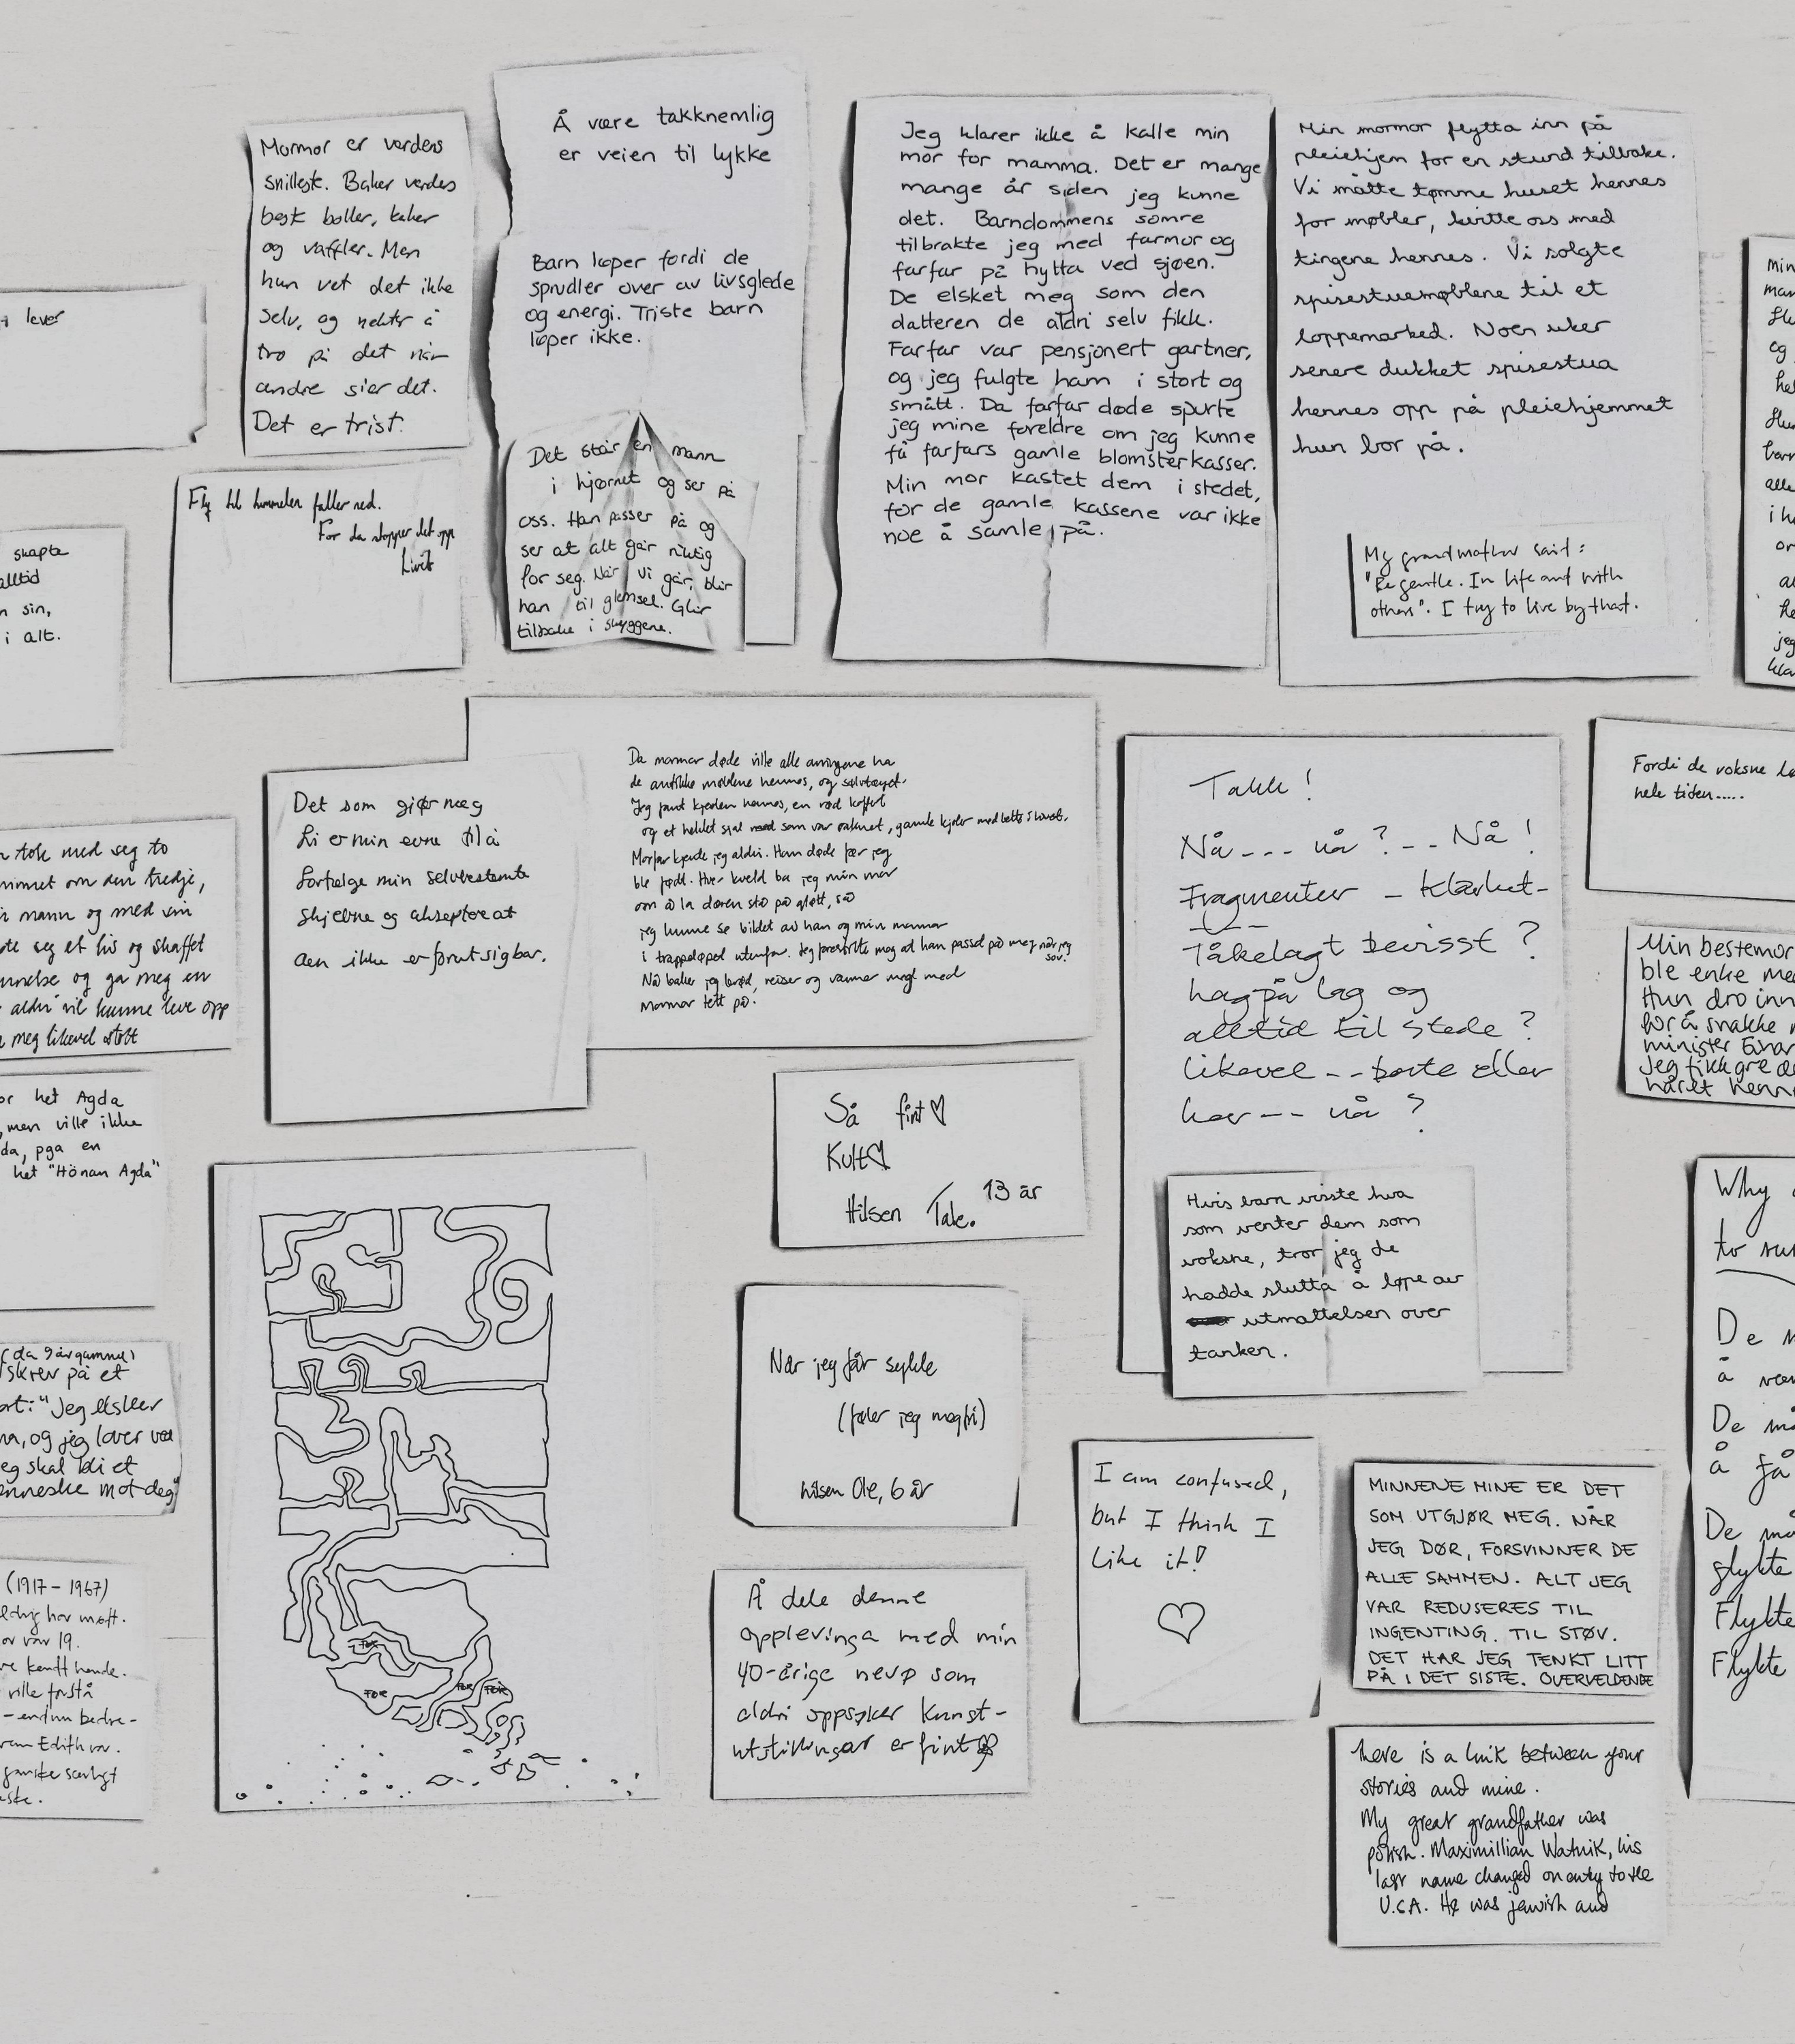 lever
Mormor er verdens
snilleste. Baker verdes
best boller, kaker
og vaffler. Men
hun vet det ikke
selv, og nekter å
tro på det når
andre sier det.
Det er trist.
Å være takknemlig
er veien til lykke
Barn løper fordi de
sprudler over av livsglede
og energi. Triste barn
løper ikke.
Det står en mann
i hjørnet og ser på
oss. Han passer på og
ser at alt går riktig
for seg. Når vi går, blir
han til glemsel. Glir
tilbake i skyggene.
Jeg klarer ikke å kalle min
mor for mamma. Det er mange
mange år siden jeg kunne
det. Barndommens somre
tilbrakte jeg med farmor og
farfar på hytta ved sjøen.
De elsket meg som den
datteren de aldri selv fikk.
Farfar var pensjonert gartner,
og jeg fulgte ham i stort og
smått. Da farfar døde spurte
jeg mine foreldre om jeg kunne
få farfars gamle blomsterkasser.
Min mor kastet dem i stedet,
for de gamle kassene var ikke
noe å samle på.
Min mormor flytta inn på
pleiehjem for en stund tilbake.
Vi måtte tømme huset hennes
for møbler, kvitte oss med
tingene hennes. Vi solgte
spisestuemøblene til et
loppemarked. Noen uker
senere dukket spisestua
hennes opp på pleiehjemmet
hun bor på.
My grandmother said:
"Be gentle. In life and with
others". I try to live by that.
min
og
alle
i h
jeg
Fly til himmelen faller ned.
For da stopper det opp
Livet
skapte
alltid
n sin,
i alt.
Da mormor døde ville alle arvingene ha
de antikke møblene hennes, og sølvtøyet.
Jeg fant kjolen hennes, en rød koffert
og et heklet sjal som var raknet, gamle kjoler med belte i livet.
Morfar kjente jeg aldri. Han døde før jeg
ble født. Hver kveld ba jeg min mor
om å la døren stå på gløtt, så
jeg kunne se bildet av han og min mormor
i trappeløpet utenfor. Jeg forestilte meg at han passet på meg når jeg
sov.
Nå baker jeg brød, reiser og vanner meg med
mormor tett på.
Det som gjør meg
fri er min evne til å
forfølge min selvbestemte
skjebne og akseptere at
den ikke er forutsigbar.
Takk!
Nå --- nå? -- Nå!
Fragmenter - klarhet -
Tåkelagt bevisst?
lag på lag og
alltid til stede?
likevel -- borte eller
her --- nå?
Fordi de voksne
hele tiden.....
n tok med seg to
ommet om den tredje,
mann og med sin
te seg et hus og skaffet
nnelse og ga meg en
aldri vil kunne leve opp
meg likevel støtt
Min bestemor
ble enke med
Hun dro inn
for å snakke
minister Einar
Jeg fikk gre de
håret henn
or het Agda
, men ville ikke
da, pga en
het "Hönan Agda"
Så fint♡
Kult♡
Hilsen Tale. 13 år
Hvis barn visste hva
som venter dem som
voksne, tror jeg de
hadde slutta å løpe av
utmattelsen over
tanken.
Why
to
De m
å
De må
å få
De må
flykte
Flykte
Flykte
(da 9 år gammel)
skrev på et
ort: "Jeg elsker
na, og jeg lover ved
eg skal bli et
enneske mot deg"
Når jeg får sykle
(føler jeg meg fri)
hilsen Ole, 6 år
I am confused,
but I think I
like it!
♡
MINNENE MINE ER DET
SOM UTGJØR MEG. NÅR
JEG DØR, FORSVINNER DE
ALLE SAMMEN. ALT JEG
VAR REDUSERES TIL
INGENTING. TIL STØV.
DET HAR JEG TENKT LITT
PÅ I DET SISTE. OVERVELDENDE
(1917-1967)
aldrig har møtt.
or var 19.
ve kendt hende.
ville forstå
-endnu bedre-
vem Edith var.
ganske særligt
Å dele denne
opplevinga med min
40-årige nevø som
aldri oppsøker kunst-
utstillingar er fint
there is a link between your
stories and mine.
My great grandfather was
polish. Maximillian Watnik, his
last name changed on entry to the
U.S.A. He was jewish and